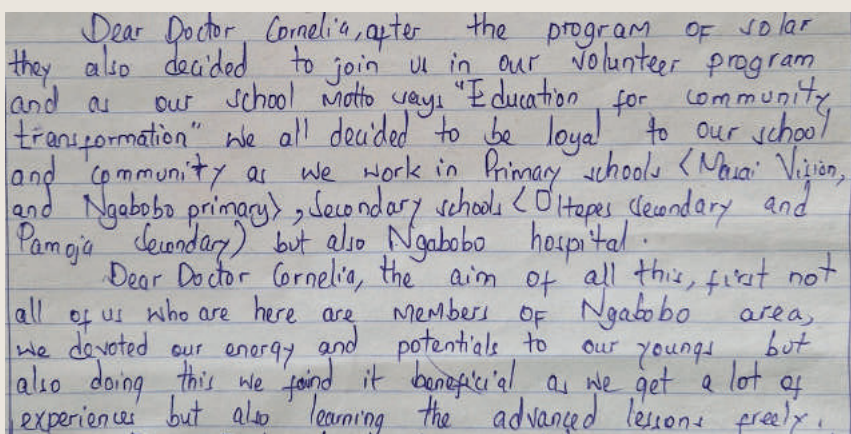 Dear Doctor Cornelia, after the program of solar
they also decided to join us in our volunteer program
and as our school Motto says "Education for community
transformation" we all decided to be loyal to our school
and community as we work in Primary schools (Masai Vision,
and Ngabobo primary), Secondary schools (Oltepes Secondary and
Pamoja Secondary) but also Ngabobo hospital.
Dear Doctor Cornelia, the aim of all this, first not
all of us who are here are members of Ngabobo area,
we devoted our energy and potentials to our youngs but
also doing this we found it beneficial as we get a lot of
experiences but also learning the advanced lessons freely.